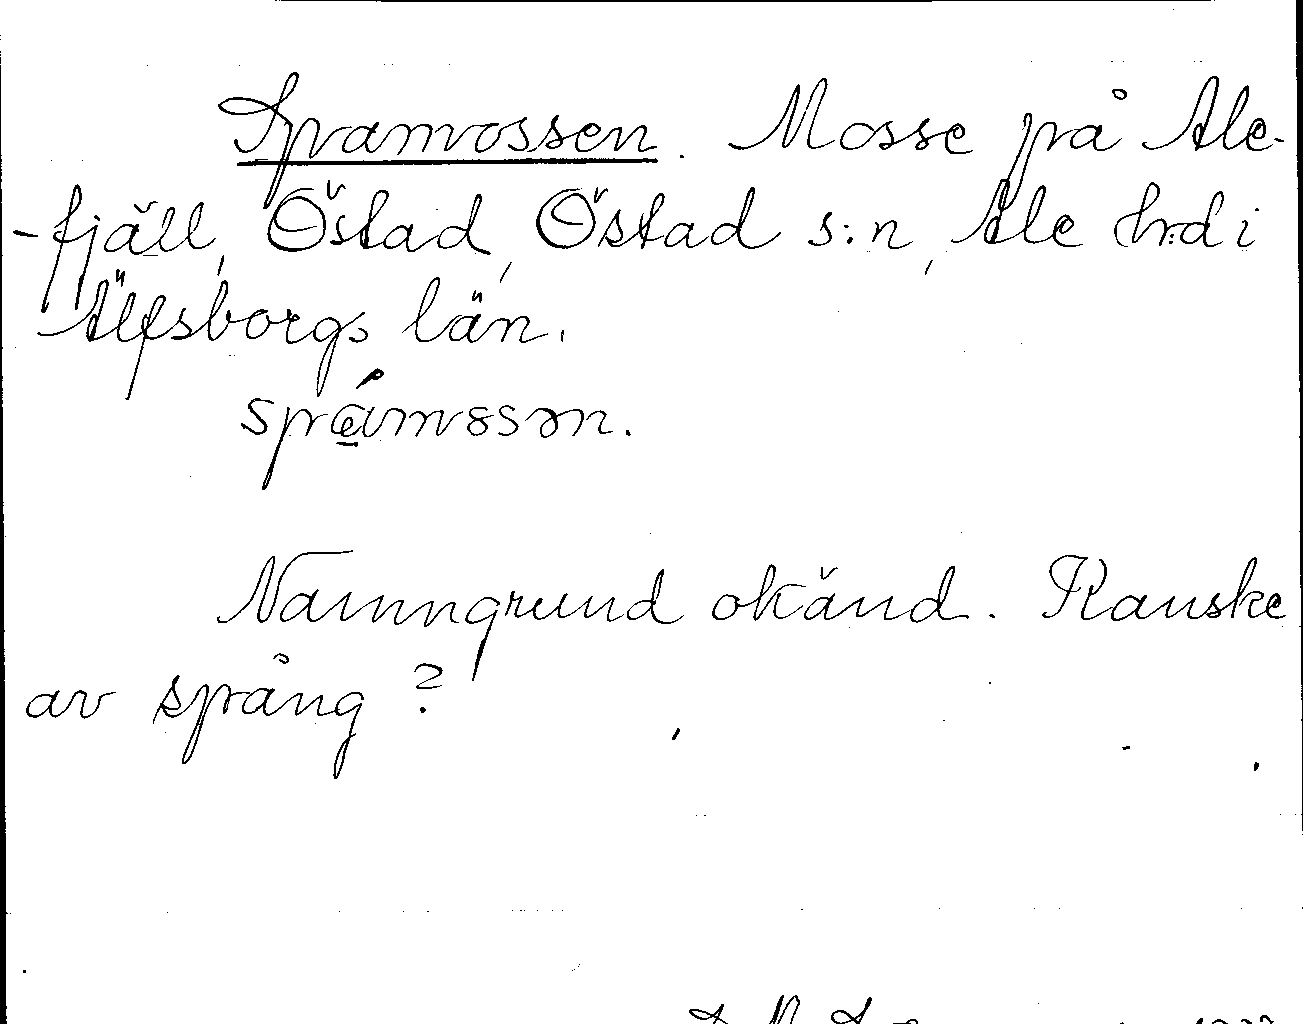 Spamossen. Mosse på Ale-
-fjäll, Östad, Östad s:n, Ale hrd i
Älfsborgs län.
Namngrund okänd. Kanske
av språng?